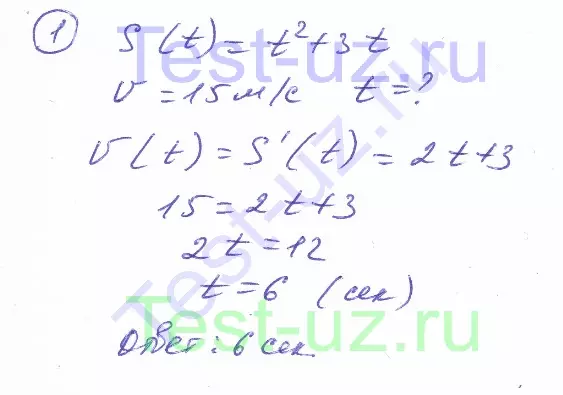 1 S(t) = t²+3t
v = 15 м/с t = ?
v(t) = S'(t) = 2t+3
15 = 2t+3
2t = 12
t = 6 (сек)
Ответ: 6 сек
Test-uz.ru
Test-uz.ru
Test-uz.ru